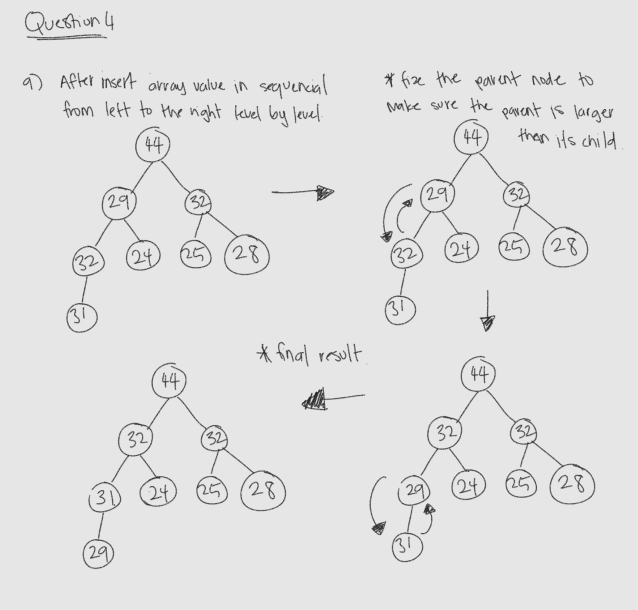 Question 4
a) After insert array value in sequencial
from left to the right level by level.
44
29 32
32 24 25 28
31
* fix the parent node to
make sure the parent is larger
than its child
44
29 32
32 24 25 28
31
* final result.
44
32 32
31 24 25 28
29
44
32 32
29 24 25 28
31